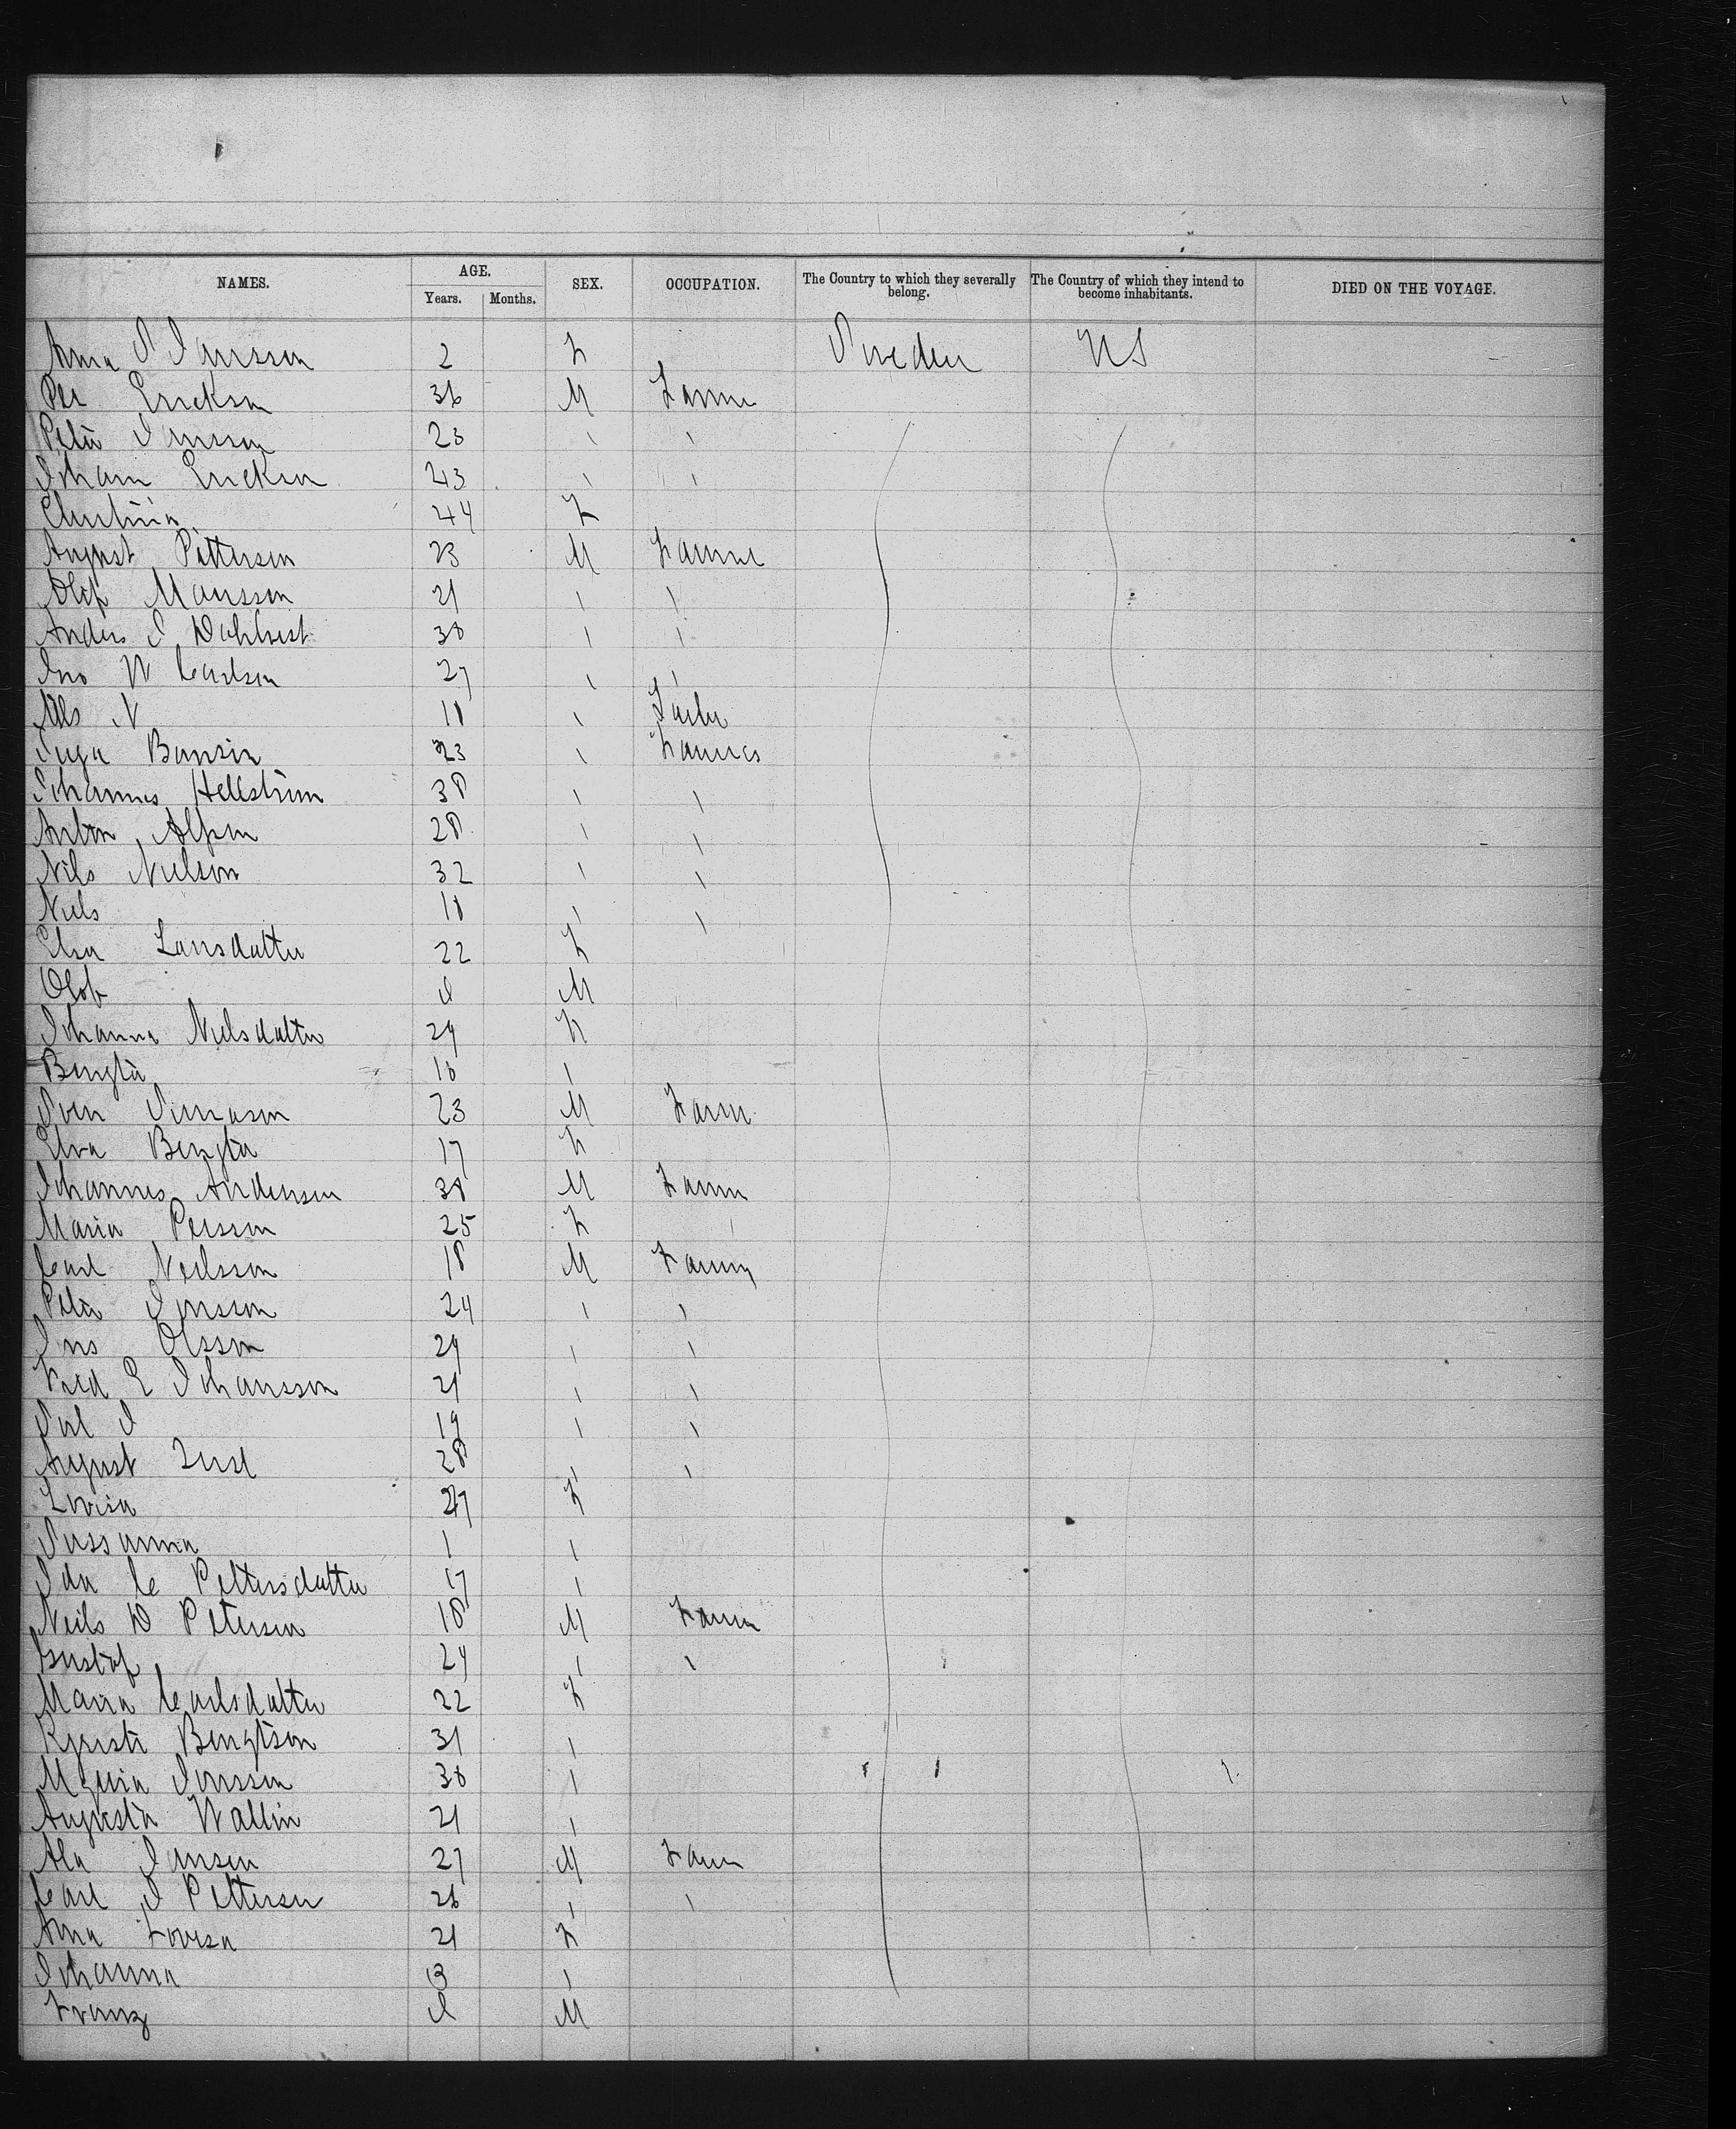 NAMES. AGE. SEX. OCCUPATION. The Country to which they severally belong. The Country of which they intend to become inhabitants. DIED ON THE VOYAGE.
Years. Months.
Anna S Jansson 2 F Sweden US
Per Erickson 36 M Farme
Peter Jansson 23 " "
Johann Erickson 43 " "
Christina 44 F
August Petterson 23 M Farme
Olof Mansson 21 " "
Anders J 38 " "
Jno W Carlson 27 " "
Nils N 11 "
Bonsin 23 " Farmes
Johannes Hellstrom 38 " "
Anton 28 " "
Nils Nielson 32 " "
Niels 11 " "
Elsa Larsdatter 22 F
Olof M
Johanna Nielsdatter 24 F
Bengta 16 "
Sven 23 M Farm
Elna Bengta 17 F
Johannes Anderson 38 M Farm
Maria Persson 25 F
Carl Neilsson 18 M Farm
Peter Jonsson 24 " "
Jns Olsson 24 " "
Fred E Johansson 21 " "
J 19 " "
August 28 " "
Lovisa 27 F
Sussanna 1 "
Ida C Pettersdatter 17 "
Neils D Peterson 18 M Farm
Gustaf 24 " "
Maria Carlsdatter 22 F
Bengtson 31 "
Jonsson 38 "
Augusta Wallin 21 "
Jansen 27 M Farm
Carl J Petterson 26 " "
Anna Lovisa 21 F
Johanna "
Franz M